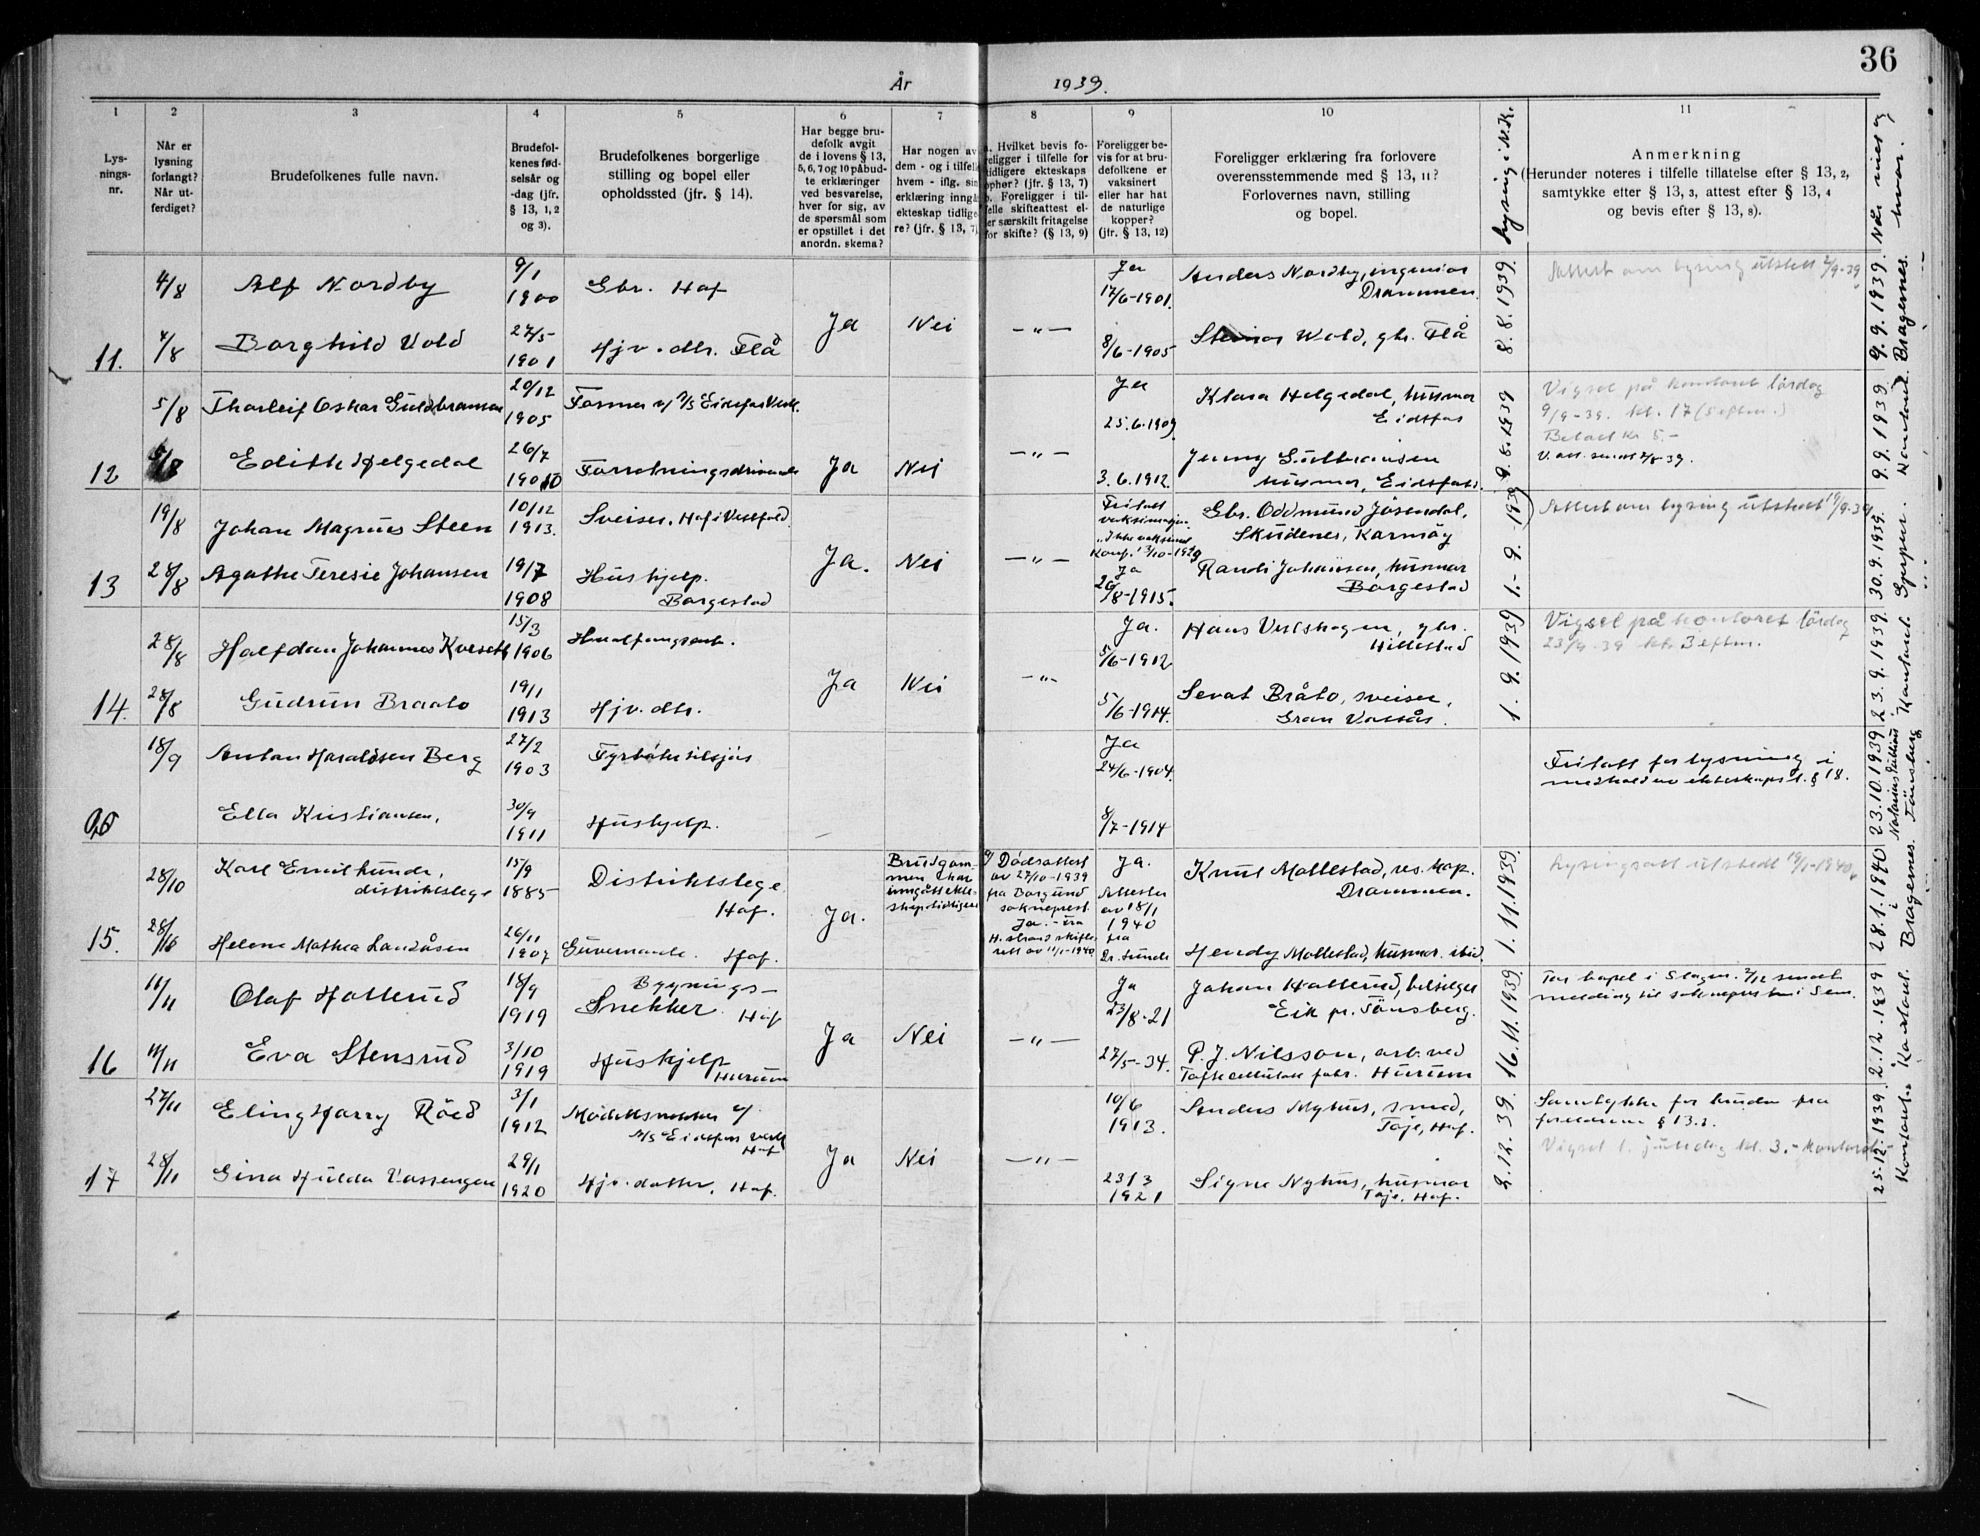 36
År 1939.
1 2 3 4 5 6 7 8 9 10 11
Lysningsnr.
Når er lysning forlangt? Når utferdiget?
Brudefolkenes fulle navn.
Brudefolkenes fødselsår og -dag (jfr. § 13, 1, 2 og 3).
Brudefolkenes borgerlige stilling og bopel eller opholdssted (jfr. § 14).
Har begge brudefolk avgit de i lovens § 13, 5, 6, 7 og 10 påbudte erklæringer ved besvarelse, hver for sig, av de spørsmål som er opstillet i det anordn. skema?
Har nogen av dem - og i tilfelle hvem - iflg. sin erklæring inngått ekteskap tidligere? (jfr. § 13, 7)
a. Hvilket bevis foreligger i tilfelle for tidligere ekteskaps ophør? (jfr. § 13, 7) b. Foreligger i tilfelle skifteattest eller særskilt fritagelse for skifte? (§ 13, 9)
Foreligger bevis for at brudefolkene er vaksinert eller har hat de naturlige kopper? (jfr. § 13, 12)
Foreligger erklæring fra forlovere overensstemmende med § 13, 11? Forlovernes navn, stilling og bopel.
Lysning i N.K.
Anmerkning (Herunder noteres i tilfelle tillatelse efter § 13, 2, samtykke efter § 13, 3, attest efter § 13, 4 og bevis efter § 13, 8).
Når viet og hvor.
4/8 Alf Nordby 9/1 1900 Gbr. Hof Ja 17/6-1901. Anders Nordby, ingeniør Drammen. Attest om lysning utstedt 2/9-39
11. 4/8 Borghild Vold 27/5 1901 Hjv. dtr. Flå Ja Nei —"— 8/6-1905 Steinar Wold, gbr. Flå 8.8.1939. 9.9.1939. Bragernes.
5/8 Thorleif Oskar Guldbransen 20/12 1905 Former v/ A/S Eidsfos Verk. Ja 25.6.1909 Klara Helgedal, husmor Eidsfos Vigsel på kontoret lördag 9/9-39. kl. 17 (5 eftm.) Betalt kr 5.-
12 5/8 Edith Helgedal 26/7 1910 Forretningsdrivende Ja Nei —"— 3.6.1912. Jenny Guldbransen husmor, Eidsfos. 9.8.1939 9.9.1939. Kontoret.
19/8 Johan Magnus Steen 10/12 1913. Sveiser, Hof i Vestfold. Fritatt vaksinasjon. "Ikke vaksinert Konf. 13/10-1929 Gbr. Oddmund Jösendal, Skudenes, Karmöy Attest om lysning utstedt 19/9-39
13 28/8 Agathe Teresie Johansen 19/7 1908 Hushjelp. Borgestad Ja. Nei —"— Ja 20/8-1915. Randi Johansen, husmor Borgestad 1.-9.-1939 30.9.1939. Gjerpen.
28/8 Halfdan Johannes Kverseth 15/3 1906 Hvalfangerarb. Ja. 5/6-1912 Hans Vestskogen, gbr. Hillestad Vigsel på kontoret lördag 23/9-39 kl. 3 eftm.
14. 28/8 Gudrun Braato 19/1 1913 Hjv. dtr. Ja Nei —"— 5/6-1914. Sevat Bråto, sveiser, Gran Vassås. 1.9.1939 23.9.1939. Kontoret.
18/9 Anton Haraldsen Berg 27/2 1903 Fyrböter tilsjös Ja 24/6-1904. Fritatt for lysning i medhold av ekteskapsl. § 18.
Ella Kristiansen, 30/9 1911 Hushjelp. 8/7-1914 23.10.1939 Notarius Publicus Tönsberg
28/10 Karl Emil Lunde, distriktslege 15/9 1885 Distriktslege Hof. Brudgommen har inngått ekteskap tidligere a/ Dødsattest av 27/10-1939 fra Borgund sokneprest. Ja. - fra skifterett av 11/1-1940 Ja. Attester av 18/1 1940 fra Dr. Lunde Knut Mollestad, res. kap. Drammen. Lysingsatt. utstedt 19/1-1940.
15. 28/10 Helene Mathea Landåsen 26/11 1907 Guvernante. Hof. Ja. Hendy Mollestad, husmor. ibid. 1.11.1939. 28.1.1940 i Bragernes.
11/11 Olaf Hallerud 18/9 1919 Bygnings- Snekker. Hof Ja 23/8-21 Johan Hallerud, bilselger Eik pr. Tönsberg. Tar bopel i Slagen. 2/12 sendt melding til soknepresten i Sem.
16 11/11 Eva Stensrud 3/10 1919 Hushjelp Hurum Ja Nei —"— 27/5-34. P. J. Nilsson, arb. ved Tofte cellulose fabr. Hurum 16.11.1939 2.12.1939 Kontoret.
27/11 Eling Harry Röed 3/1 1912 Modellsnekker v/ A/S Eidsfos Verk Hof 10/6 1913. Anders Nyhus, smed, Toje, Hof. Samtykke for bruden fra foreldrene § 13.3. Vigsel 1. juledag kl. 3. - kontoret -
17 28/11 Gina Hulda Vassengen 29/1 1920 Hjv. datter, Hof. Ja Nei —"— 23/3 1921 Signe Nyhus, husmor Toje, Hof. 2.12.39. 25.12.1939. Kontoret.